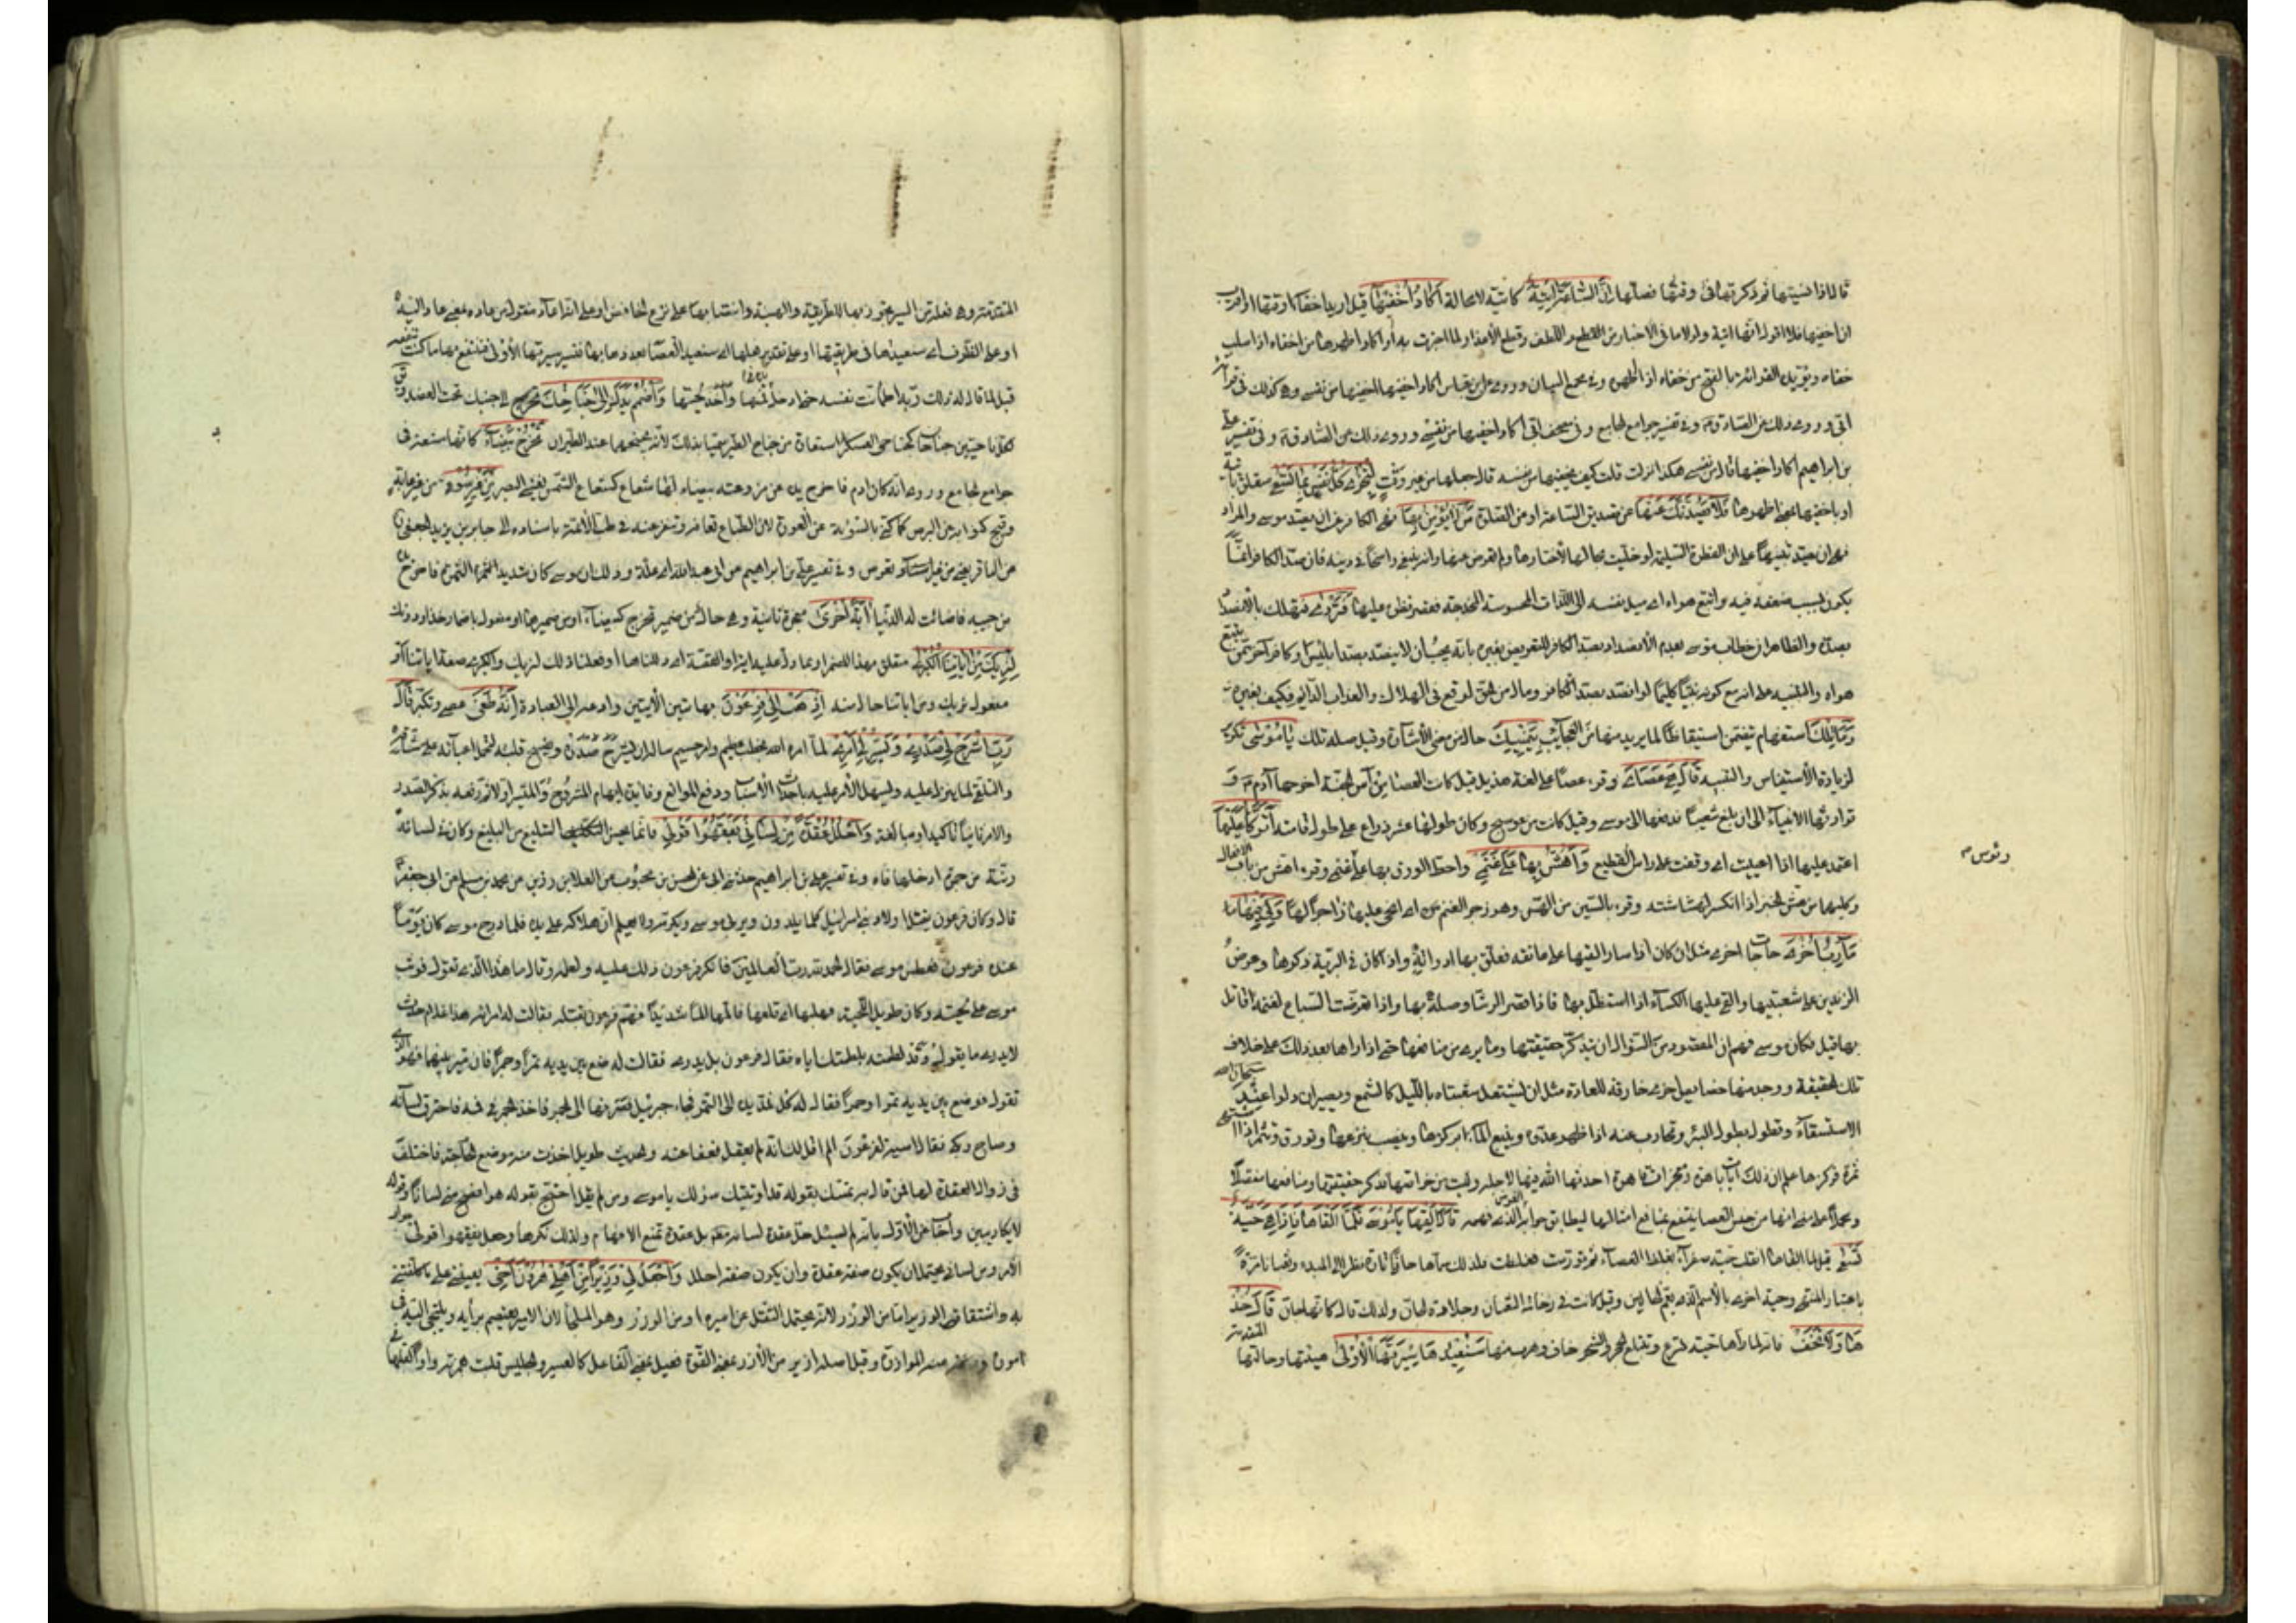 قال اذا نسيتها ثم ذكرتها في وقتها فصلها إِنَّ السَّاعَةَ آتِيَةٌ كائنة لا محالة أَكَادُ أُخْفِيهَا قيل اريد اخفاء وقتها او اقرب
ان اخفيها فلا اقول انها اتية ولولا ما في الاخبار من اللطف وقطع الاعذار لما اخبرت به او اكاد اظهرها من اخفاه اذا سلب
خفاه ويؤيده القراءة بالفتح من خفاه اذا اظهره وفي مجمع البيان وروى ابن عباس اكاد اخفيها من نفسي وهي كذلك في قراءة
ابي وروى ذلك عن الصادق وفي تفسير جوامع الجامع وفي مصحف ابي اكاد اخفيها من نفسي وروى ذلك عن الصادق وفي تفسير علي
بن ابراهيم اكاد اخفيها قال من نفسي هكذا نزلت قلت كيف يخفيها من نفسه قال جعلها من غير وقت لِتُجْزَى كُلُّ نَفْسٍ بِمَا تَسْعَى متعلق باتية
او باخفيها على معنى اظهرها فَلَا يَصُدَّنَّكَ عَنْهَا عن تصديق الساعة او من الصلوة مَنْ لَا يُؤْمِنُ بِهَا نهى الكافر عن ان يصد موسى والمراد
نهيه ان ينصد تنبيها على ان الفطرة السليمة لو خليت بحالها لاختارها ولم يعرض عنها وانه ينبغي راسخا في دينه فان صد الكافر انما
يكون بسبب ضعفه فيه وَاتَّبَعَ هَوَاهُ اي ميل نفسه الى اللذات المحسوسة المخدجة فقصر نظره عليها فَتَرْدَى فتهلك بالانصداد
بصده والظاهر ان خطاب موسى بعدم الانصداد بصد الكافر للتعريض بغيره بانه يجب ان لا ينصد بصد ابليس وكافر آخر ممن يتبع
هواه والتنبيه على انه مع كونه نبيا كليما لو انصد بصد الكافر ومال من الحق لوقع في الهلاك والعذاب الدائم فكيف بغيره
وَمَا تِلْكَ استفهام يتضمن استيقاظا لما يريه منها من العجايب بِيَمِينِكَ حال من معنى الاشارة وقيل صلة تلك يَا مُوسَى تكرير
لزيادة الاستيناس والتنبيه قَالَ هِيَ عَصَايَ وقرء عصى على لغة هذيل قيل كانت العصا من آس الجنة اخرجها آدم و
توارثها الانبياء الى ان بلغ شعيبا فدفعها الى موسى وقيل كانت من عوسج وكان طولها عشر ذراع على طول قامته أَتَوَكَّأُ عَلَيْهَا
اعتمد عليها اذا اعييت او وقفت على راس القطيع وَأَهُشُّ بِهَا عَلَى غَنَمِي واخبط الورق بها على غنمي وقرء اهش من باب الافعال
وكلاهما من هش الخبز اذا انكسر لهشاشته وقرء بالسين من الهس وهو زجر الغنم اي انحي عليها زاجرا لها وَلِيَ فِيهَا
مَآرِبُ أُخْرَى حاجات اخرى مثل ان كان اذا سار القيها على عاتقه فعلق بها ادواته واذا كان في البرية ركزها وعرض
الزندين على شعبتيها والقى عليها الكساء اذا استظل بها واذا قصر الرشا وصله بها واذا تعرضت السباع لغنمه قاتل
بها قيل فكان موسى فهم ان المقصود من السؤال ان يتذكر حقيقتها وما يرى من منافعها حتى اذا رآها بعد ذلك على خلاف
تلك الحقيقة ووجد منها خصايص اخرى خارقة للعادة مثل ان تشتعل شعبتاه بالليل كالشمع وتصيران دلوا عند
الاستسقاء وتطول بطول البئر وتحارب عنه اذا ظهر عدو وينبع الماء بركزها وينضب بنزعها وتورق وتثمر اذا اشتهى
ثمرة فركزها علم ان ذلك آيات باهرة ومعجزات قاهرة احدثها الله فيها لاجله وليست من خواصها فذكر حقيقتها ومنافعها مفصلا
ومجملا على معنى انها من جنس العصا ينتفع بمنافع امثالها ليطابق جوابه الغرض الذي فهمه قَالَ أَلْقِهَا يَا مُوسَى فَأَلْقَاهَا فَإِذَا هِيَ حَيَّةٌ
تَسْعَى قيل لما القاها انقلبت حية صفراء بغلظ العصا ثم تورمت وعظمت فلذلك سماها جانا تارة نظرا الى المبدء وثعبانا تارة
باعتبار المنتهى وحية اخرى بالاسم الذي يعم الحالين وقيل كانت في ضخامة الثعبان وجلادة الجان ولذلك قال كانها جان قَالَ خُذْ
هَا وَلَا تَخَفْ فانه لما رآها حية تسرع وتبتلع الحجر والشجر خاف وهرب منها سَنُعِيدُهَا سِيرَتَهَا الْأُولَى هيئتها وحالتها
المتقدمة
رؤس
المتقدمة وهي فعلة من السير تجوز بها للطريقة والهيئة وانتصابها على نزع الخافض او على ان اعاد منقول من عاده بمعنى عاد اليه
او على الظرف اي سنعيدها في طريقتها او على تقدير فعلها اي سنعيد العصا بعد ذهابها تسير سيرتها الاولى فتنتفع بها ما كنت تنتفع
قبل لما قال له ذلك ربه اطمأنت نفسه حتى ادخل يده في فمها واخذ بلحييها وَاضْمُمْ يَدَكَ إِلَى جَنَاحِكَ الى جنبك تحت العضد
كلا ناحيتين جناحا كجناحي العسكر استعارة من جناح الطير سميا بذلك لانه يجنحهما عند الطيران تَخْرُجْ بَيْضَاءَ كانها مشعة في
جوامع الجامع وروى انه كان ادم فاخرج يده من مدرعته بيضاء لها شعاع كشعاع الشمس يغشى البصر مِنْ غَيْرِ سُوءٍ من غير عاهة
وقبح كنى به عن البرص كما كنى بالسوءة عن العورة لان الطباع تعافه وتنفر عنه في طب الائمة باسناده الى جابر بن يزيد الجعفي
عن الباقر يعني من غير برص وفي تفسير علي بن ابراهيم عن ابي عبد الله وذلك ان موسى كان شديد السمرة فاخرج يده
من جيبه فاضائت له الدنيا آيَةً أُخْرَى معجزة ثانية وهي حال من ضمير تخرج كبيضاء او من ضميرها او مفعول باضمار خذ او دونك
لِنُرِيَكَ مِنْ آيَاتِنَا الْكُبْرَى متعلق بهذا المضمر او بما دل عليه آية او القصة اي دللنا بها او فعلنا ذلك لنريك والكبرى صفة آياتنا او
مفعول نريك ومن آياتنا حال منه اذْهَبْ إِلَى فِرْعَوْنَ بهاتين الآيتين وادعه الى العبادة إِنَّهُ طَغَى عصى وتكبر قَالَ
رَبِّ اشْرَحْ لِي صَدْرِي وَيَسِّرْ لِي أَمْرِي لما امره الله بخطب عظيم وامر جسيم سأله ان يشرح صدره ويفسح قلبه لتحمل اعبائه
والتلقي لما ينزل عليه ويسهل الامر عليه باحداث الاسباب ورفع الموانع وفايدة لي ابهام المشروح والميسر اولا ثم رفعه بذكر الصدر
والامر تأكيدا ومبالغة وَاحْلُلْ عُقْدَةً مِنْ لِسَانِي يَفْقَهُوا قَوْلِي فانما يحسن التبليغ من البليغ وكان في لسانه
رتة من جمرة ادخلها فاه وفي تفسير علي بن ابراهيم حدثني ابي عن الحسن بن محبوب عن العلا بن رزين عن محمد بن مسلم عن ابي جعفر
قال وكان فرعون يقتل اولاد بني اسرائيل كلما يلدون ويربي موسى ويكرمه ولا يعلم ان هلاكه على يده فلما درج موسى كان يوما
عند فرعون فعطس موسى فقال الحمد لله رب العالمين فانكر فرعون ذلك عليه ولطمه وقال ما هذا الذي تقول فوثب
موسى على لحيته وكان طويل اللحية فهلبها اي قلعها فآلمها الما شديدا فهم فرعون بقتله فقالت له امرأته هذا غلام حدث
لا يدري ما يقول وقد لطمته بلطمتك اياه فقال فرعون بل يدري فقالت له ضع بين يديه تمرا وجمرا فان ميز بينهما فهو الذي
تقول فوضع بين يديه تمرا وجمرا فقال له كل فمد يده الى التمر فجاء جبرئيل فصرفها الى الجمر فاخذ الجمر في فيه فاحترق لسانه
وصاح وبكى فقالت آسية لفرعون الم اقل لك انه لم يعقل فعفا عنه والحديث طويل اخذت منه موضع الحاجة فاختلف
في زوال العقدة فمن قال به تمسك بقوله قد اوتيت سؤلك يا موسى ومن لم يقل احتج بقوله هو افصح مني لسانا وقوله
لا يكاد يبين واجاب عن الاول بانه لم يسئل حل عقدة لسانه مطلقا بل عقدة تمنع الافهام ولذلك نكرها وجعل يفقهوا قولي جواب
الامر ومن لساني يحتمل ان يكون صفة عقدة وان يكون صلة احلل وَاجْعَلْ لِي وَزِيرًا مِنْ أَهْلِي هَارُونَ أَخِي يعينني على ما كلفتني
به واشتقاق الوزير اما من الوزر لانه يحتمل الثقل عن اميره او من الوزر وهو الملجأ لان الامير يعتصم برأيه ويلتجي اليه في
اموره ومنه الموازرة وقيل اصله ازير من الازر بمعنى القوة فعيل بمعنى الفاعل كالعشير والجليس قلبت همزته واوا كقلبها